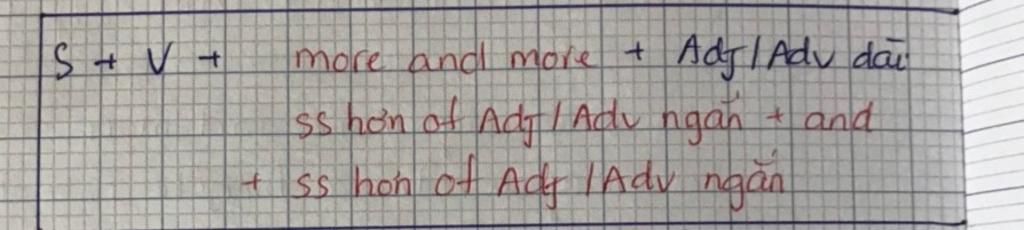 S + V + more and more + Adj/Adv dài
ss hơn of Adj/Adv ngắn + and
+ ss hơn of Adj/Adv ngắn